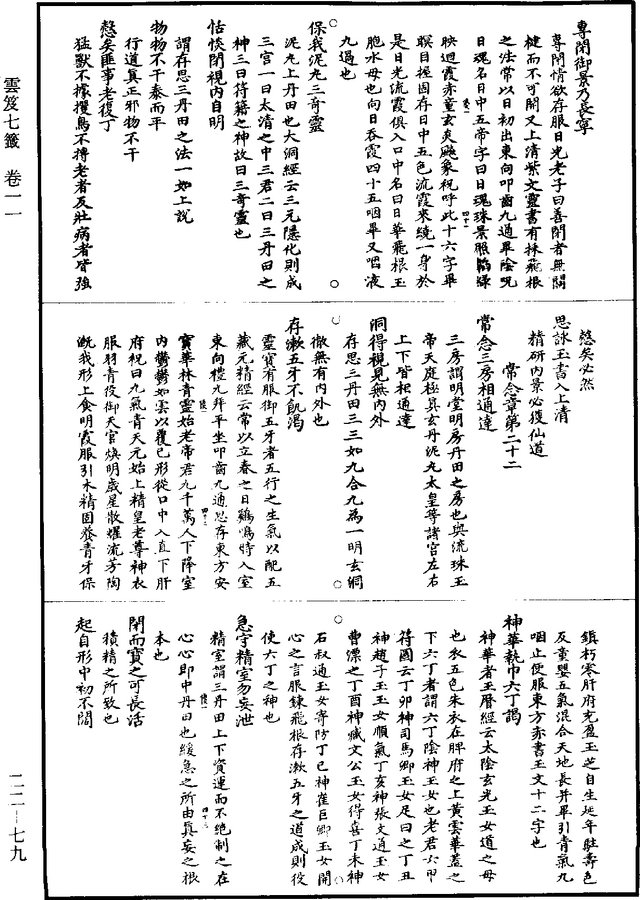 雲笈七籤 卷一一
二二—七九
專閉御景乃長寧
專閉情欲存服日光老子曰善閉者無關
楗而不可開又上清紫文靈書有採飛根
之法常以日初出東向叩齒九通畢陰呪
日魂名日中五帝字曰日魂珠景照韜綠
映迴霞赤童玄炎飈象祝呼此十六字畢
瞑目握固存日中五色流霞來繞一身於
是日光流霞俱入口中名曰日華飛根玉
胞水母也向日吞霞四十五咽畢又咽液
九過也
保我泥丸三奇靈
泥丸上丹田也大洞經云三元隱化則成
三宮一曰太清之中三君二曰三丹田之
神三曰符籍之神故曰三奇靈也
恬惔閉視內自明
謂存思三丹田之法一如上說
物物不干泰而平
行道真正邪物不干
愨矣匪事老復丁
猛獸不據攫鳥不搏老者反壯病者皆強
愨矣必然
思詠玉書入上清
精研內景必獲仙道
常念章第二十二
常念三房相通達
三房謂明堂明房丹田之房也與流珠玉
帝天庭極真玄丹泥丸太皇等諸宮左右
上下皆相通達
洞得視見無內外
存思三丹田三三如九合九為一明玄洞
徹無有內外也
存漱五牙不飢渴
靈寶有服御五牙者五行之生氣以配五
藏元精經云常以立春之日鷄鳴時入室
東向禮九拜平坐叩齒九通思存東方安
寶華林青靈始老帝君九千萬人下降室
內鬱鬱如雲以覆己形從口中入直下肝
府祝曰九氣青天元始上精皇老尊神衣
服羽青役御天官煥明歲星散耀流芳陶
溉我形上食明霞服引木精固養青牙保
鎮朽零肝府充盈玉芝自生延年駐壽色
反童嬰五氣混合天地長并畢引青氣九
咽止便服東方赤書玉文十二字也
神華執巾六丁謁
神華者玉曆經云太陰玄光玉女道之母
也衣五色朱衣在脾府之上黃雲華蓋之
下六丁者謂六丁陰神玉女也老君六甲
符圖云丁卯神司馬卿玉女足曰之丁丑
神趙子玉玉女順氣丁亥神張文通玉女
曹漂之丁酉神臧文公玉女得喜丁未神
石叔通玉女寄防丁巳神崔巨卿玉女開
心之言服鍊飛根存漱五牙之道成則役
使六丁之神也
急守精室勿妄泄
精室謂三丹田上下資運而不絕制之在
心心即中丹田也緩急之所由真妄之根
本也
閉而寶之可長活
積精之所致也
起自形中初不闊